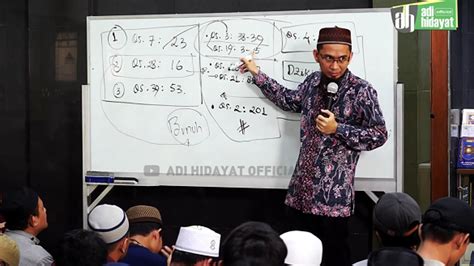 adi
hidayat
official
1 QS. 7 : 23
2 QS. 28 : 16
3 QS. 39 : 53.
• QS. 3 : 38-39
QS. 19 : 3-15
• QS. 21
• QS. 2 : 201
#
QS. 4 :
Dzik
ADI HIDAYAT OFFICIAL